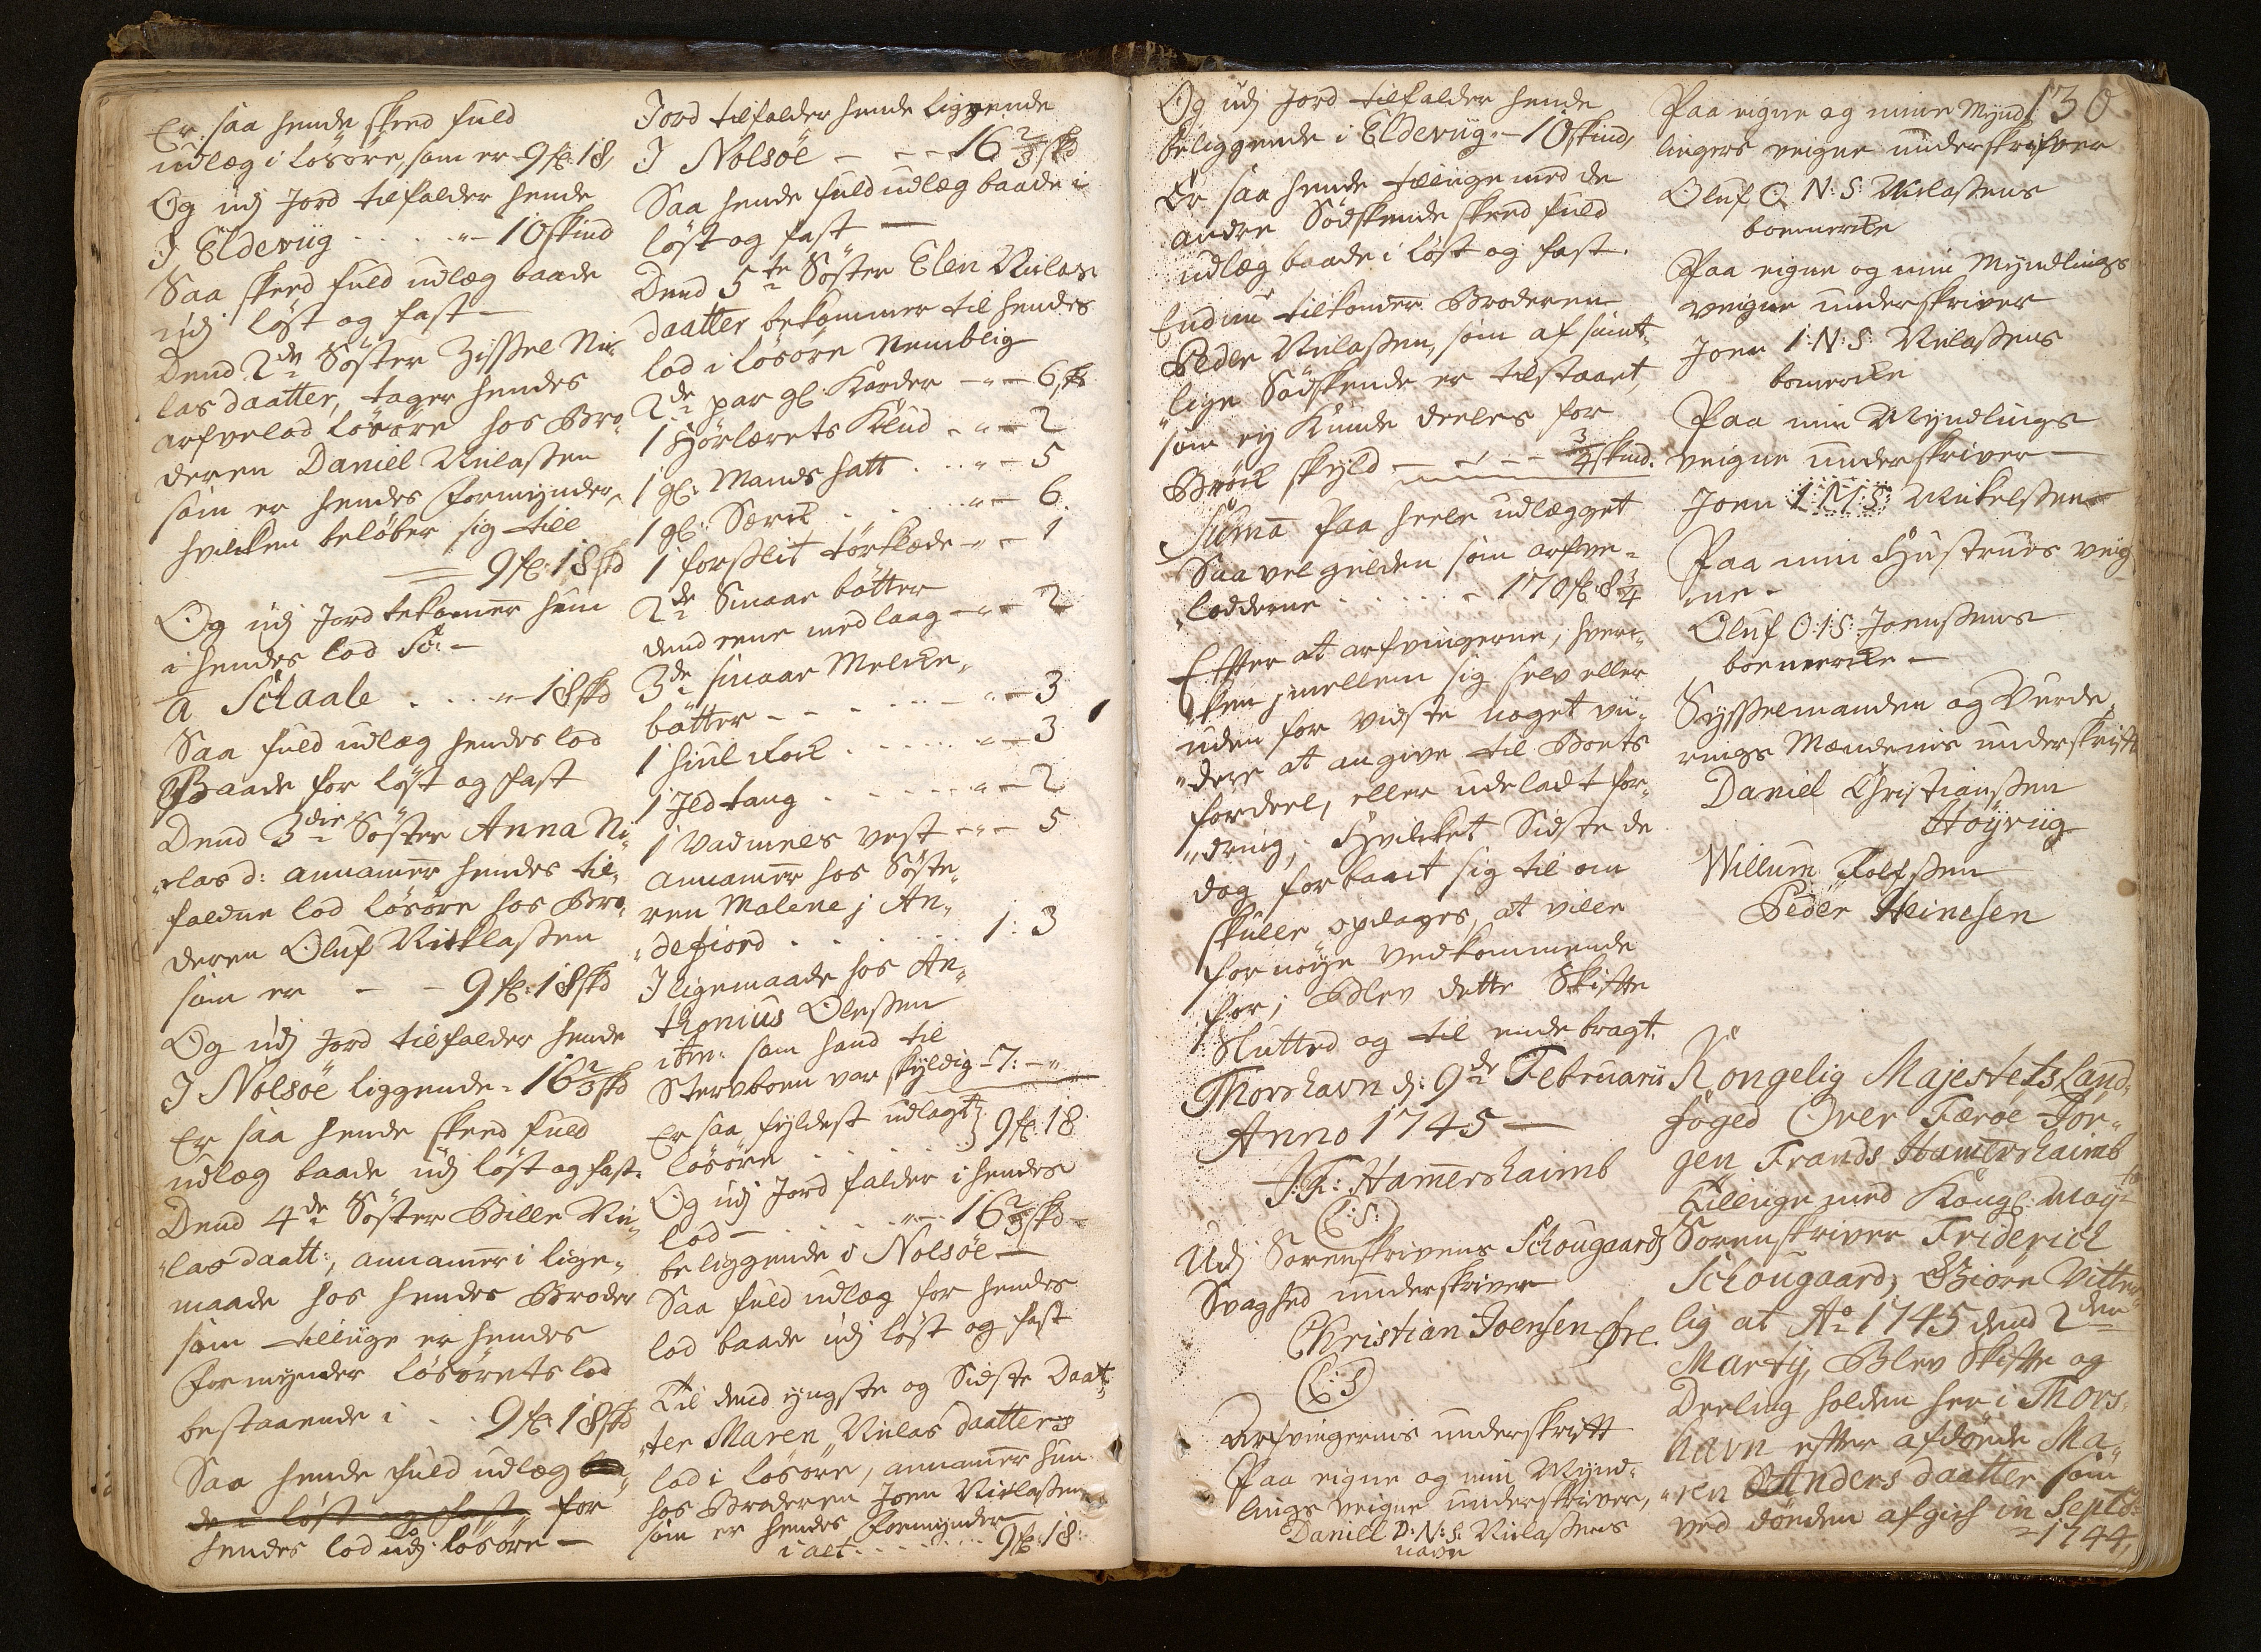 Er saa hende skeed fuld
udlæg i Løsøre, som er 9 fl: 18,
Og udj Jord tilfalder hende
I Eldeviig . . . "– 10 skind
Saa skeed fuld udlæg baade
udj løst og fast –
Dend 2de Søster Zissel Nic¬
las daatter, tager hendes
arfvelod Løsøre hos Bro¬
deren Daniel Niclasen
som er hendes Formynder,
hvilken beløber sig till
9 fl: 18 skd
Og udj Jord bekommer hun
i hendes lod
a Schaale . . . "– 18 skd
Saa fuld udlæg hendes lod
Baade for løst og fast
Dend 3die Søster Anna Ni¬
"clas d: annamer hendes til¬
faldne lod Løsøre hos Bro¬
deren Oluf Nicklasen
som er – – 9 fl: 18 skd
Og udj Jord tilfalder hende
I Nolsøe liggende – 16 2/3 skd
Er saa hende skeed fuld
udlæg baade udj løst og fast.
Dend 4de Søster Bille Nic¬
"las daatt:, annamer i lige¬
maade hos hendes Broder
som tillige er hendes
Formynder Løsørets lod
bestaaende i . . 9 fl: 18 skd
Saa hende fuld udlæg baa¬
de i løst og fast, for
hendes lod udj Løsøre –
Jord tilfalder hende liggende
I Nolsøe – – – 16 2/3 skd
Saa hende fuld udlæg baade i
løst og fast –
Dend 5te Søster Elen Niclas
daatter bekommer til hendes
lod i Løsøre Nemblig
2de par gl: Karder – " – 6 sk
1 Hørlærets Klud – " – 2
1 gl: Mands hatt . . " – 5
1 gl: Særck . . . " – 6.
1 forslit tørklæde – " – 1
2de Smaae bøtter
dend eene med laag – " – 2
3de smaae Melcke¬
bøtter – – – – " – 3
1 hiul Rock . . . . " – 3
1 Ild tang . . . . " – 2
1 Vadmels vest – " – 5
annamer hos Søste¬
ren Malene j An¬
"defiord . . . . 1: 3
I ligemaade hos An¬
thonius Olesen
som hand til
Stervboen var skyldig – 7: – "
Er saa fyldest udlagt
Løsøre . . . . } 9 fl: 18
Og udj Jord falder i hendes
lod – . . . " – 16 2/3 skd –
beliggende i Nolsøe –
Saa fuld udlæg for hendes
lod baade udj løst og fast
Til dend yngste og Sidste Daat¬
"ter Maren Niclas daatters
lod i Løsøre, annamer hun
hos Broderen Joen Niclasen
som er hendes Formynder
i alt . . . . . 9 fl: 18:
Og udj Jord tilfalder hende
beliggende i Eldeviig – 10 skind,
Er saa hende tillige med de
andre Sødskende skeed fuld
udlæg baade i løst og fast.
Endnu tilkommer Broderen
Peder Niclasen, som af samt¬
"lige Sødskende er tilstaaet,
som ey kunde deeles for
Brøck skyld – – – 3/4 skind.
Suma Paa heele udlægget
Saavel gielden som arfve¬
"lodderne . . . . – 170 fl: 8 3/4
Efter at arfvingerne, hver¬
"ken jmellem sig selv eller
uden for vidste noget vii¬
"dere at angive til Boets
fordeel, eller udeladt for¬
"dring, Hvilcket Sidste de
dag forbandt sig til om
skulle opdages, at ville
fornøye vedkommende
for; Blev dette Skifte
Sluttet og til ende bragt.
Thorshavn d: 9de Februarii
Anno 1745 –
J: F: Hamershaimb
(L: S:)
Udj Sorenskrivens Schougaards
Svaghed underskriver
Christian Joensen
(L: S)
Arfvingernis underskrift
Paa eigne og min Mynd¬
lings veigne underskriver,
Daniel D: N: S: Niclasens
navn
130
Paa eigne og mine Mynd¬
lingers veigne underskrifver
Oluf O N: S: Niclasens
boemercke
Paa eigne og min Myndlings
veigne underskriver
Joen I: N: S: Niclasens
bomercke
Paa min Myndlings
veigne underskriver –
Joen I: M: S: Mikelsen
Paa min Hustrues veig
ne –
Oluf O: I: S: Joensens
boemercke –
Sysselmanden og Vurde¬
rings Mændenis underskrift
Daniel Christiansen
Høyviig
Willum Rolfsen
Peder Heinesen
Kongelig Majestets Land¬
foged Over Færøe Jør¬
gen Frands Hamershaimb
Tillige med Kongl: May:ts
Sorenskriver Friderich
Schougaard, Giøre Vitter¬
lig at Ao 1745 dend 2den
Martij, Blev Skifte og
Deeling holden her i Thors¬
havn efter afdøde Ma¬
"ren Anders daatter som
ved døden afgich in Septbr:
1744,